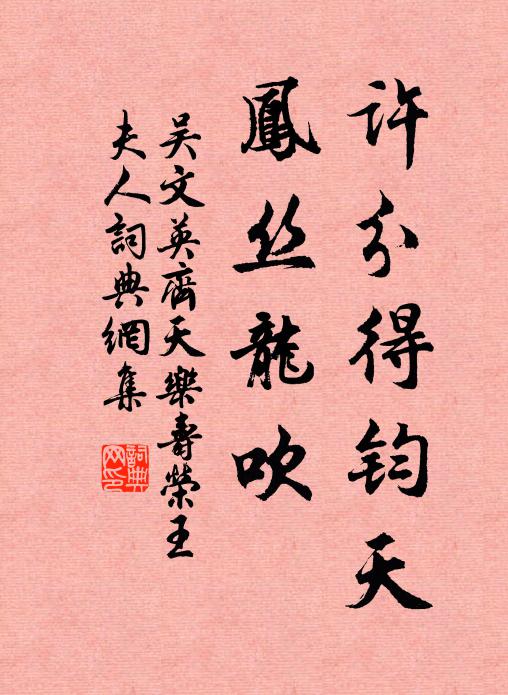 许分得钧天
鳳丝龍吹
吴文英齊天樂壽榮王
夫人詞典網集
詞典
网印